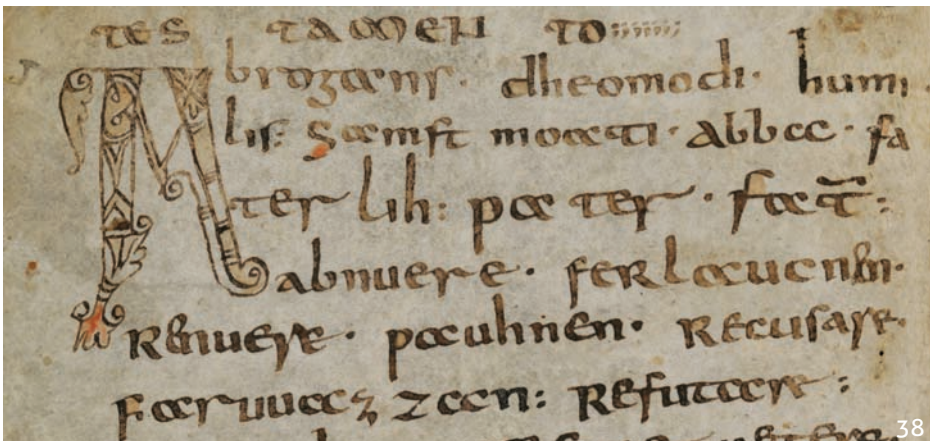 tes tamen to
Abrogans· dheomodi· humi
lis: samft moati· abba· fa
ter lih: pater· fat̄:
abnuere· ferlaucnen·
Renuere· pauhnen· Recusare·
faruuaz zan: Refutare:
38